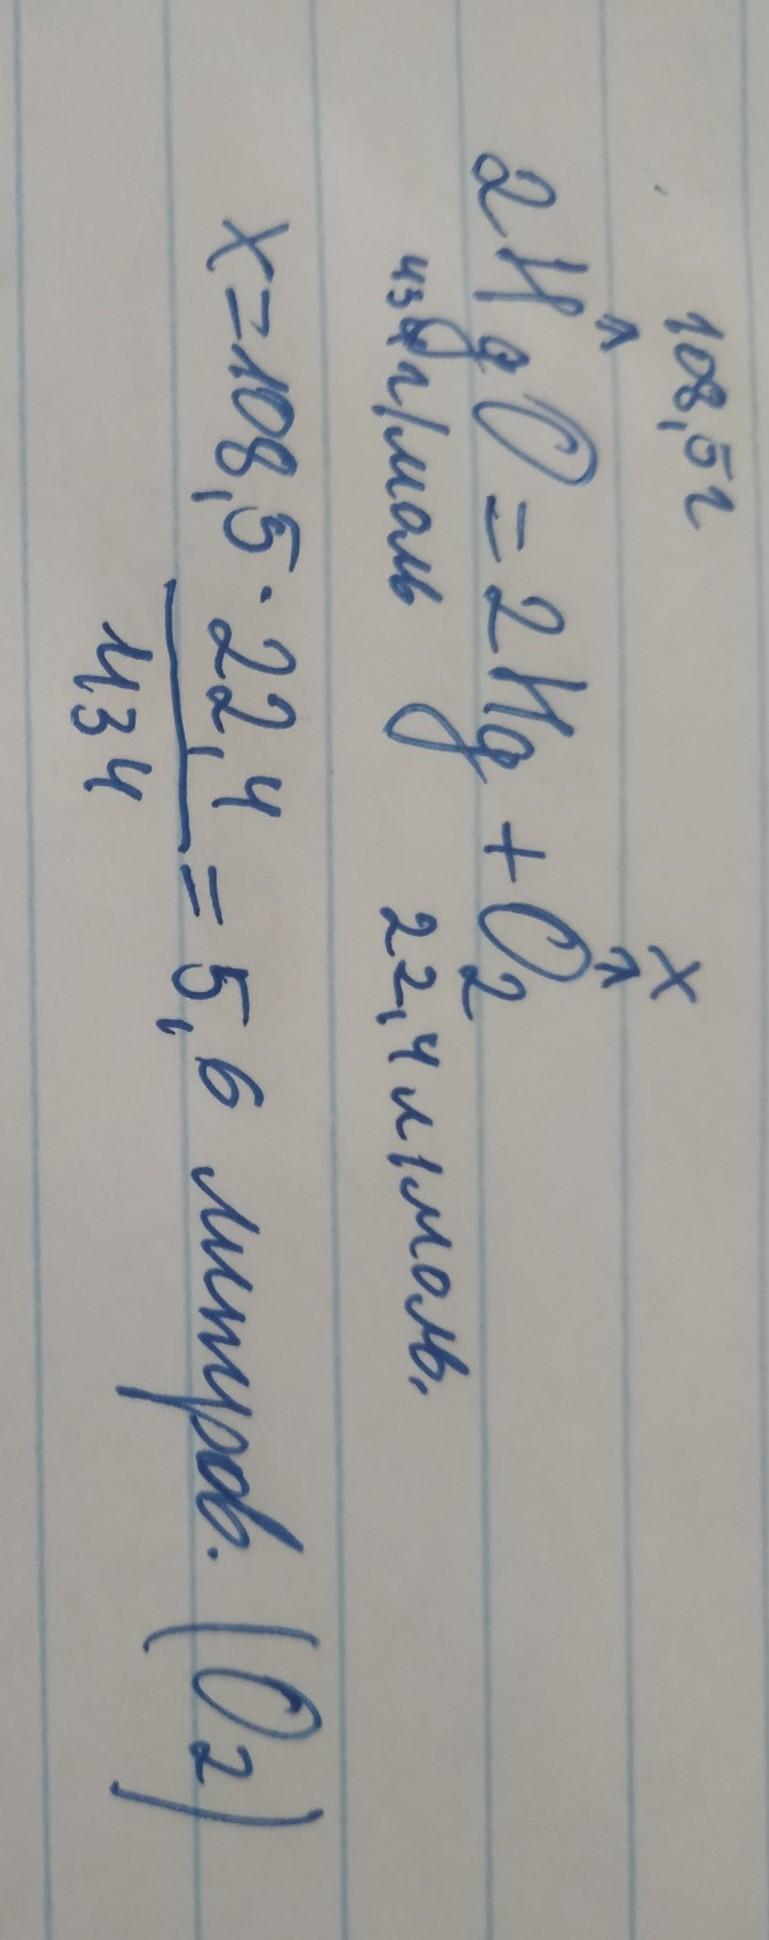 108,5г x
2HgO = 2Hg + O2
434 г/моль 22,4 л/моль.
x = 108,5 · 22,4 = 5,6 литров. (O2)
434